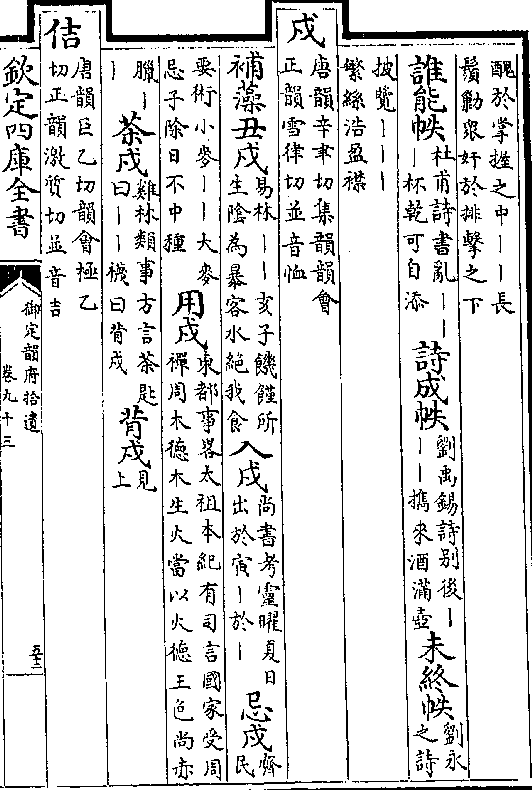 醜於掌握之中丨丨長
鬚動眾奸於排擊之下
誰能帙
杜甫詩書亂丨丨
丨杯乾可自添
詩成帙
劉禹錫詩别後丨
丨丨攜來酒滿壺
未終帙
劉永
之詩
披覽丨丨丨
繁絲浩盈襟
戍
唐韻辛聿切集韻韻會
正韻雪律切並音恤
補藻丑戍
易林丨丨亥子饑饉所
生陰為暴客水絕我食
入戍
尚書考靈曜夏日
出於寅丨於丨
忌戍
齊民
要術小麥丨丨大麥
忌子除日不中種
用戍
東都事畧太祖本紀有司言國家受周
禪周木德木生火當以火德王色尚赤
臘丨
丨
茶戍
雞林類事方言茶匙
曰丨丨襪曰背戍
背戍
見
上
佶
唐韻巨乙切韻會極乙
切正韻激質切並音吉
欽定四庫全書
御定韻府拾遺
卷九十三
五十二